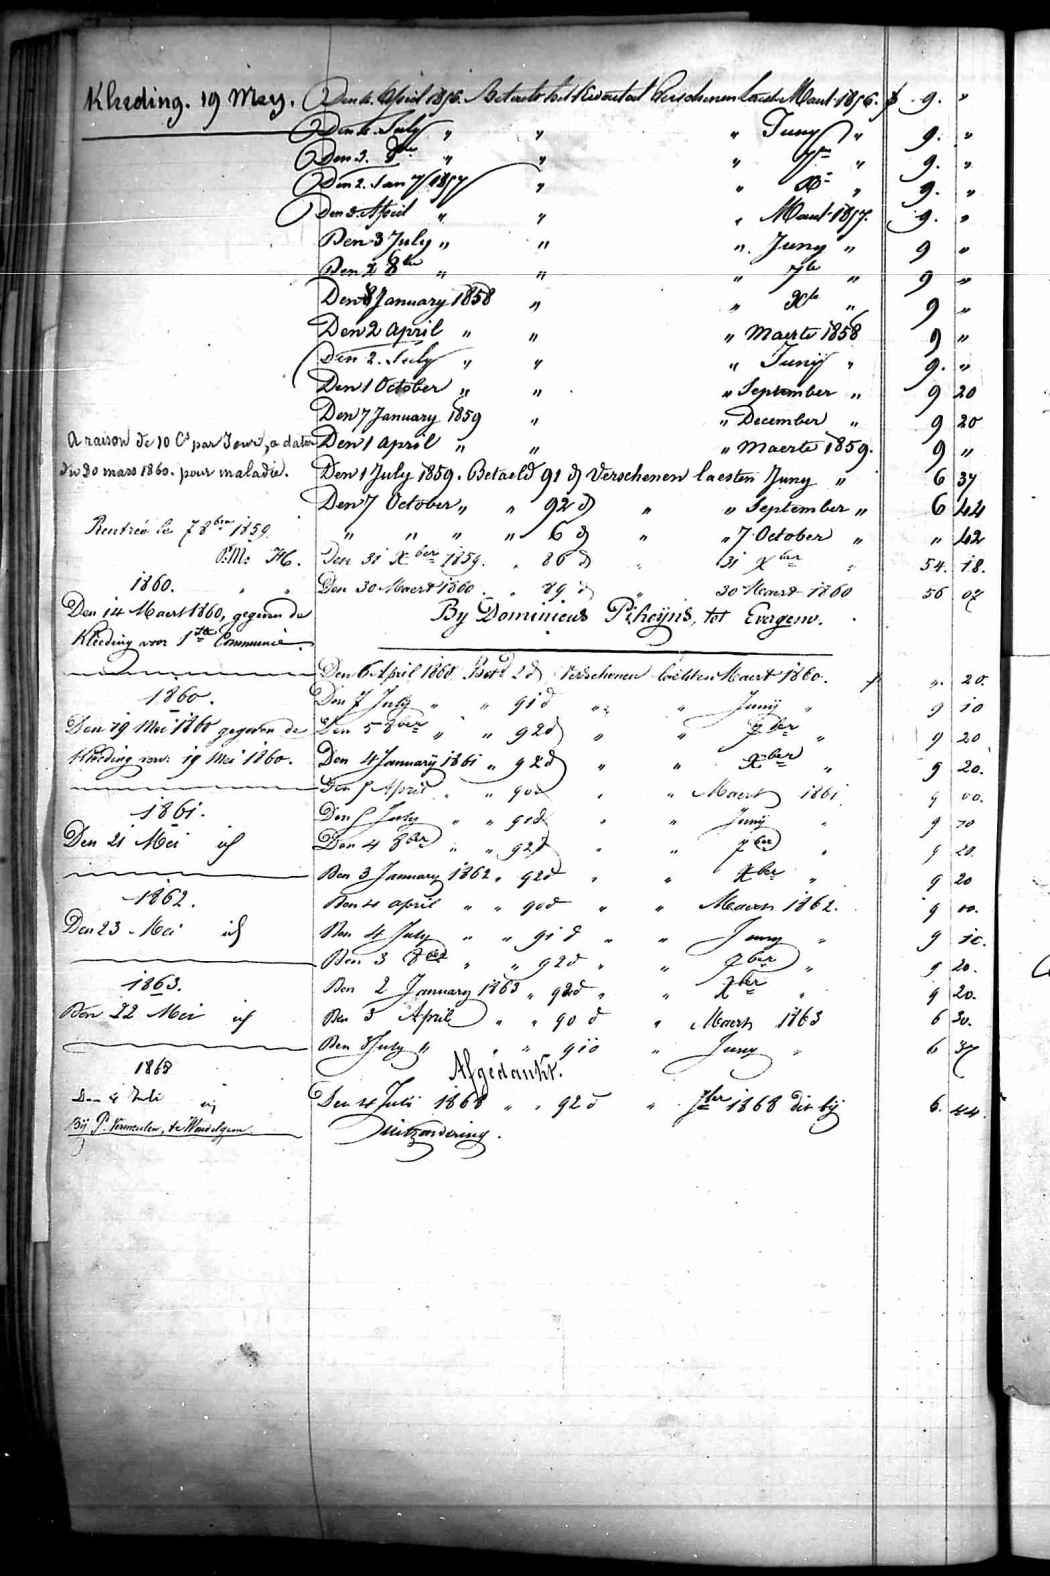 Kleeding. 19 Mey.
Den 4. April 1856. Betaelt het Kwartael Verschenen laest Maert 1856. f 9. "
Den 4. July " " " Juny " 9. "
Den 3. 8bre " " " 7bre " 9. "
Den 2. Jan 1857 " " Xbre " 9. "
Den 3. April " " " Maert 1857. 9. "
Den 3 July " " " Juny " 9 "
Den 2 8bre " " " 7bre " 9 "
Den 8 January 1858 " " Xbre " 9 "
Den 2 April " " " Maerte 1858 9 "
Den 2. July " " " Junij " 9. "
Den 1 October " " " September " 9 20
Den 7 January 1859 " " December " 9 20
Den 1 April " " " Maerte 1859. 9 "
A raison de 10 Cs par Jour, a dater
du 30 mars 1860. pour maladie.
Den 1 July 1859. Betaeld 91 d Verschenen laesten Juny " 6 37
Den 7 October " " 92 d " " September " 6 44
Rentrée le 7 8bre 1859.
" " " " 6 d " " 7 October " " 42
Den 31 Xber 1859. " 86 d " 31 Xber " 54. 18.
1860. " "
Den 30 Maert 1860 " 89 d " 30 Maert 1860 56 07
Den 14 Maert 1860, gegeven de
Kleeding voor 1ste Communie.
By Dominicus Pheijns, tot Evergem.
Den 6 April 1860 Bet 2 d Verschenen laetsten Maert 1860. f ". 20.
1860.
Den 7 July " " 91 d " " Junij " 9 10
Den 19 Mei 1860 gegeven de
Kleeding voor 19 Mei 1860.
Den 5 8ber " " 92 d " " 7ber " 9 20
Den 4 January 1861 " 92 d " " Xber " 9 20.
Den 5 April " " 90 d " " Maert 1861 9 00.
1861.
Den 5 July " " 91 d " " Junij " 9 10
Den 21 Mei id
Den 4 8ber " " 92 d " " 7ber " 9 20.
Den 3 January 1862 " 92 d " " Xber " 9 20
1862.
Den 4 April " " 90 d " " Maert 1862. 9 00.
Den 23 Mei id
Den 4 July " " 91 d " " Juny " 9 10.
Den 3 8ber " " 92 d " " 7ber " 9 20.
1863.
Den 2 January 1863 " 92 d " " Xber " 9 20.
Den 22 Mei id
Den 3 April " " 90 d " Maert 1863 6 30.
Den 3 July " " " 91 d " Juny " 6 37
Afgedankt.
1868
Den 4 Juli id
Bij P. Vermeulen, te Wondelgem
Den 4 Juli 1868 " " 92 d " 7ber 1868 dit bij 6. 44.
Uitzondering.